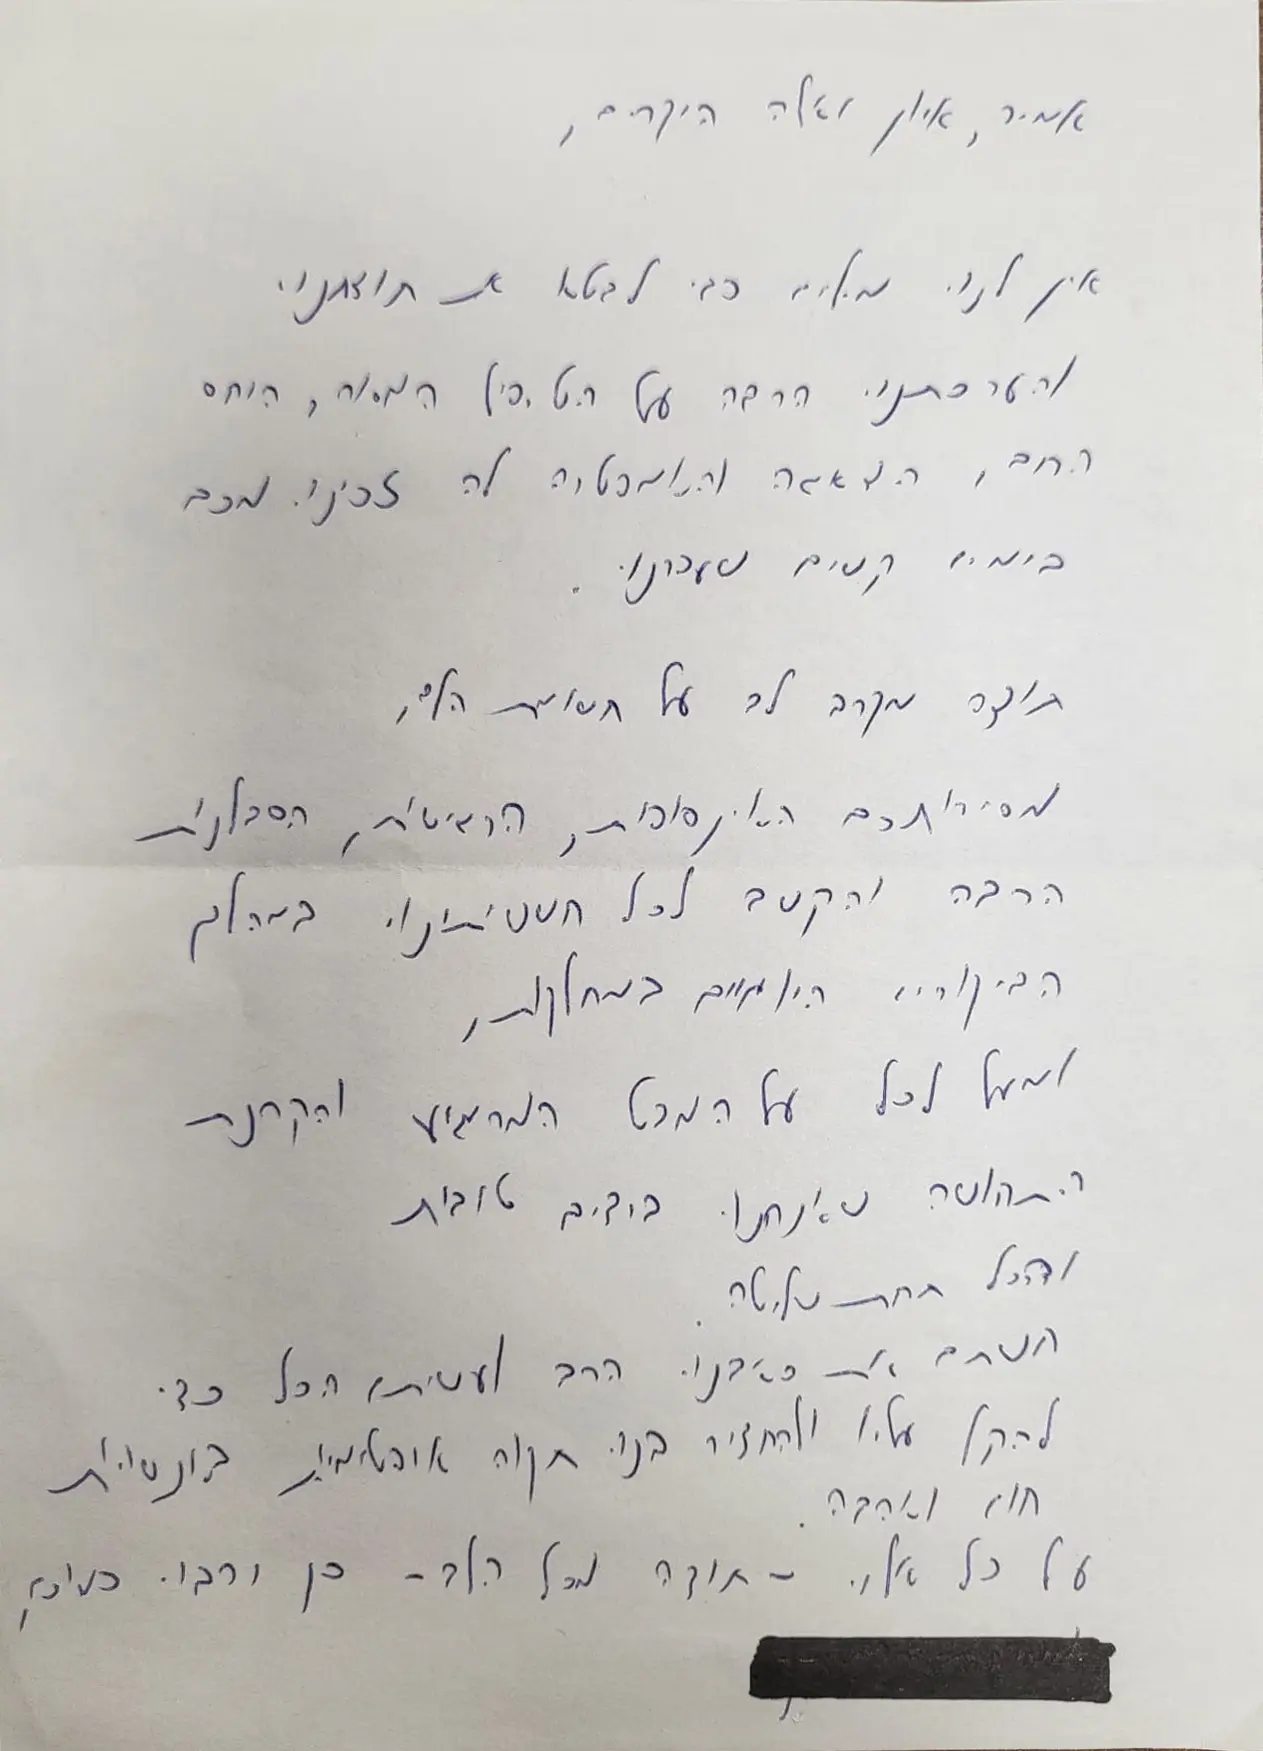 אמיר, איון ואלה היקרים,
אין לנו מילים כדי לבטא את תודתנו
והערכתנו הרבה על הטיפול המסור, היחס
החם, הדאגה והאמפטיה לה זכינו מכם
בימים קשים שעברנו.
תודה מקרב לב על תשומת הלב,
מסירותכם האינסופית, הרגישות, הסבלנות
הרבה והקשב לכל חששותינו במהלך
הביקורים היומיים במחלקות,
ומעל לכל על המבט המרגיע והקרנת
התחושה שאנחנו בידיים טובות
והכל תחת שליטה.
חשתם את כאבנו הרב ועשיתם הכל כדי
להקל עלינו ולהחדיר בנו תקוה אופטימיות
חום ואהבה.
על כל אלו - תודה מכל הלב - כן ירבו כמוכם,